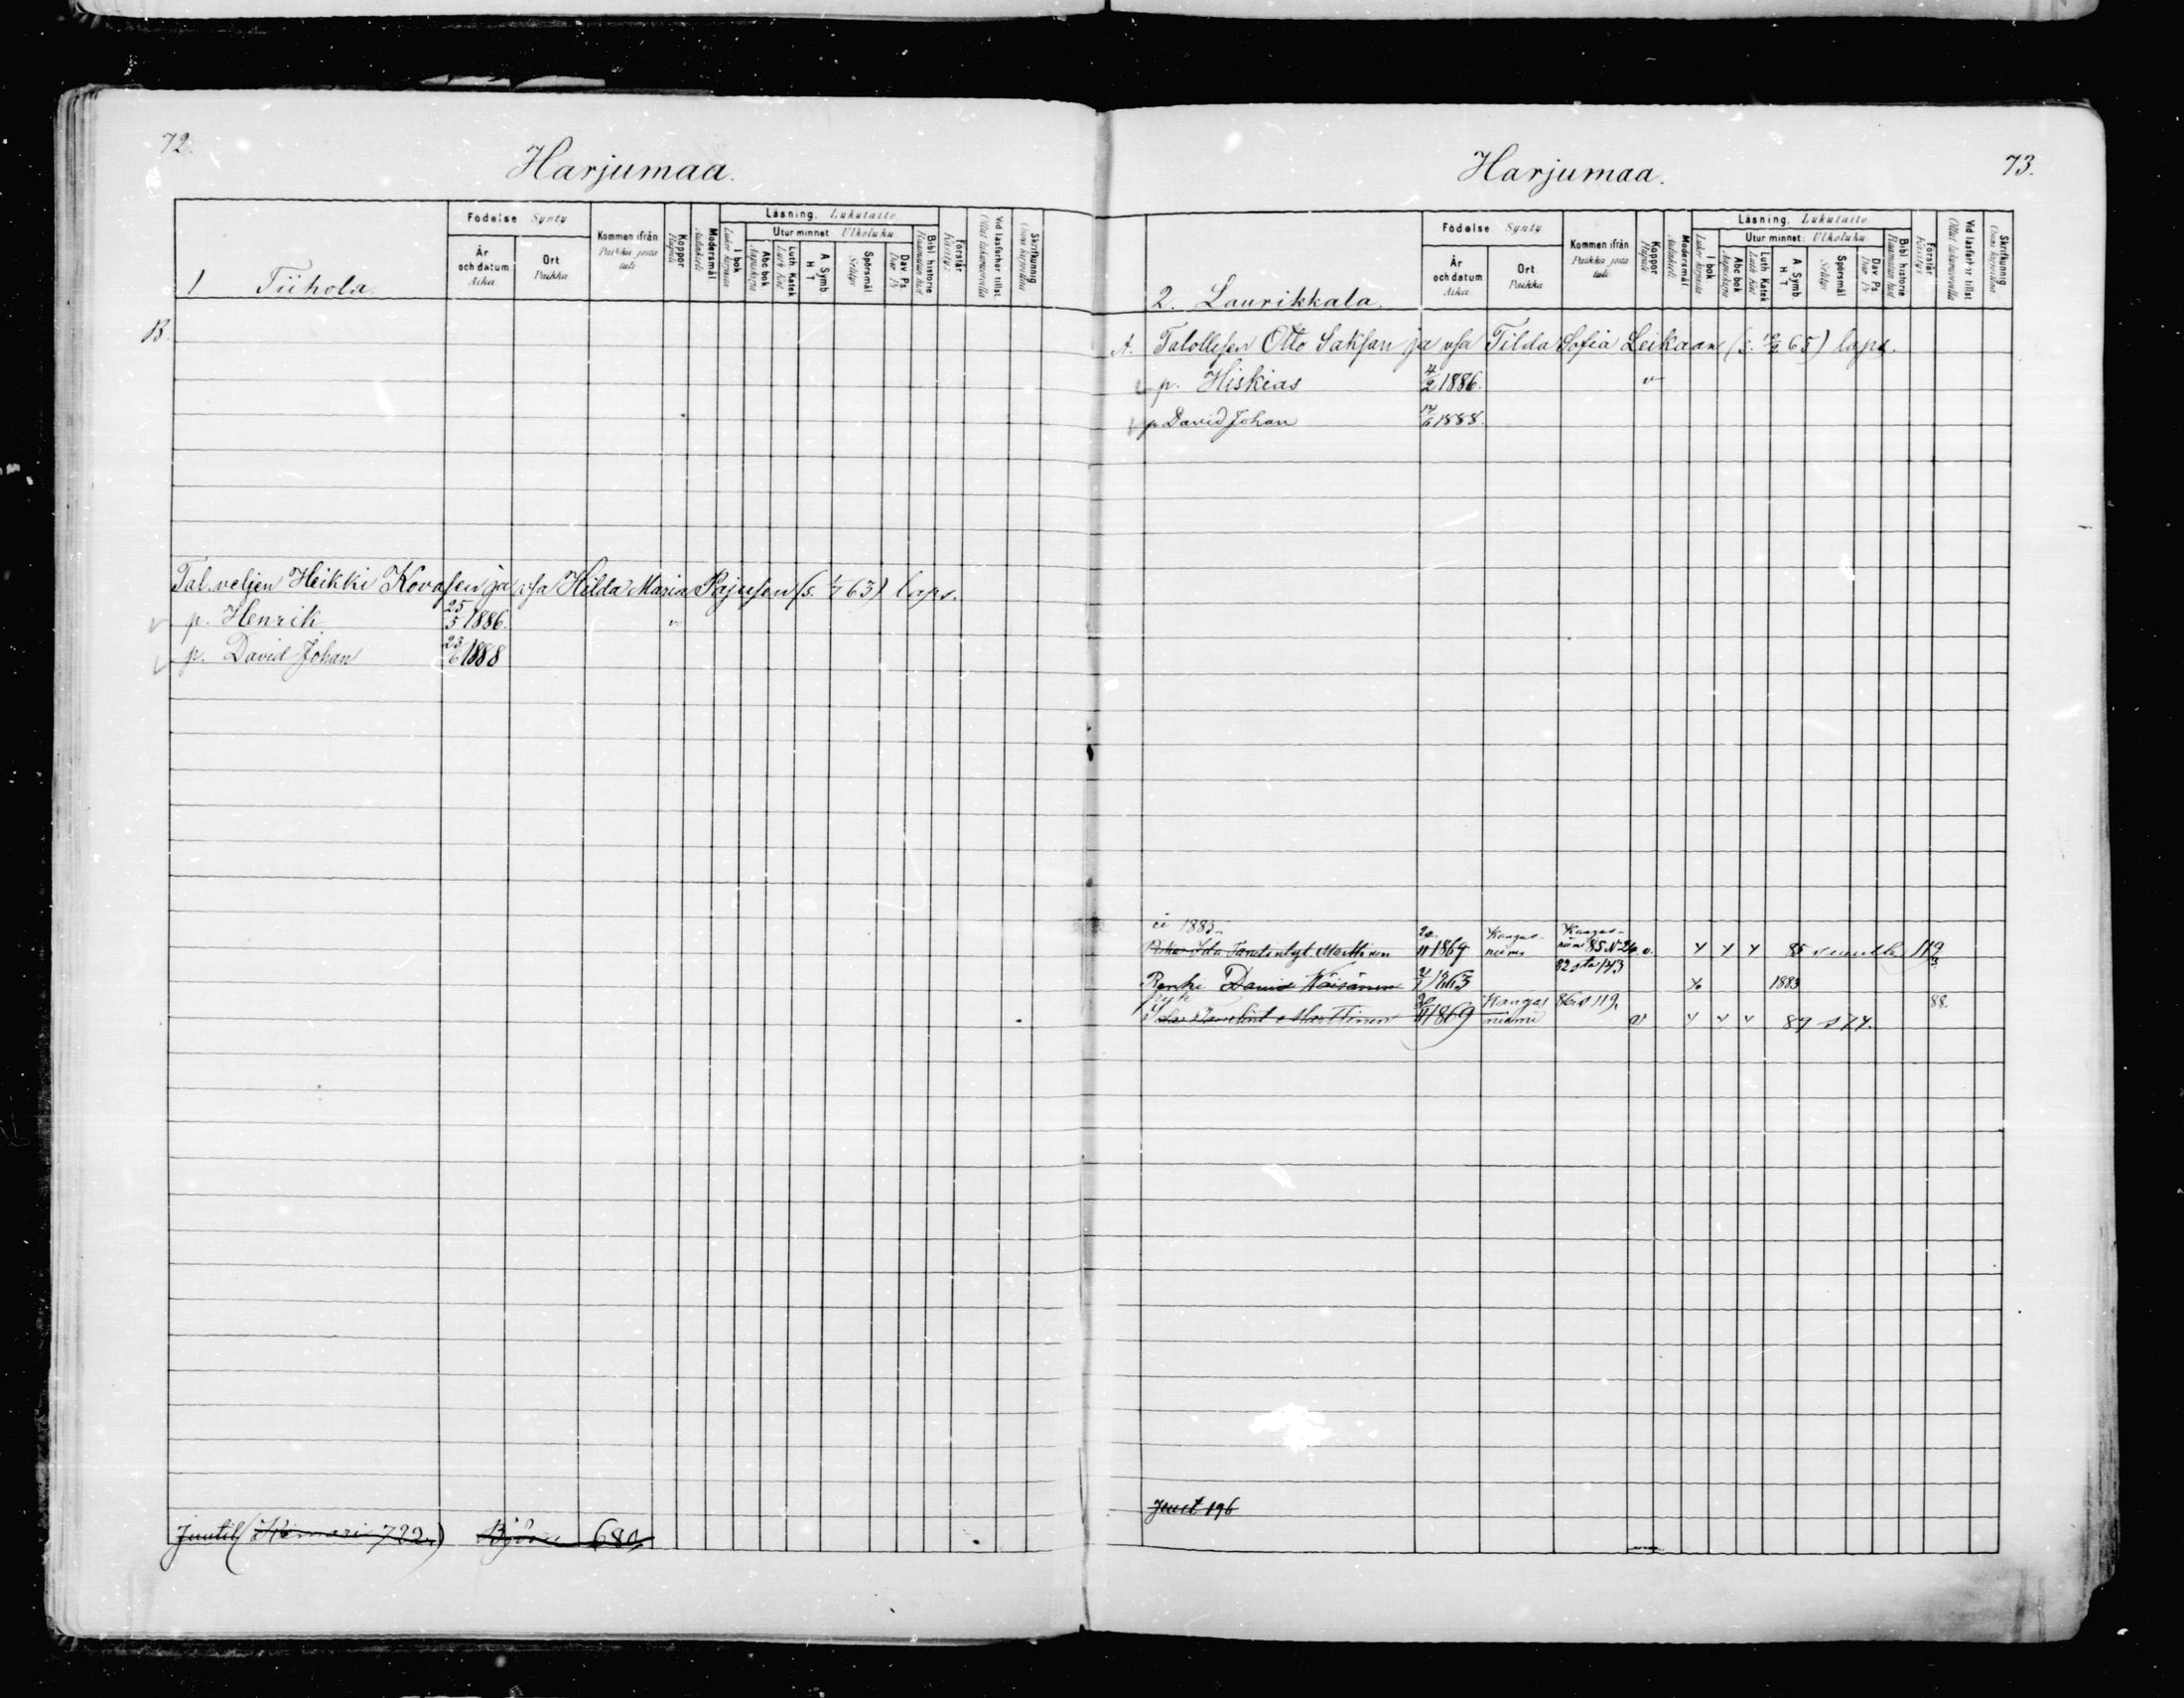 72.
Harjumaa.
1 Tiihola.
Födelse Synty
År och datum Aika
Ort Paikka
Kommen ifrån Paikka josta tuli
Koppor Rupuli
Modersmål. Äidinkieli
Läsning. Lukutaito
I bok Luku kirjasta
Utur minnet Ulkoluku
Abc bok Aapiskirja
Luth Katek Luth Kat
A Symb. H T
Spörsmål Selitys
Dav. Ps Daw Ps
Bibl. historie Raamatun hist
Förstår Käsitys
Vid läsförhör tillst Ollut lukukinkereillä
Skrifkunnig Osaa kirjoittaa
B.
Tal. veljen Heikki Kovasen ja vsa Hilda Maria Pajusen (s. 1/7 63) laps.
p. Henrik 25/5 1886. "
p. David Johan 23/6 1888
Juutil 722.) 680
73.
Harjumaa.
2. Laurikkala.
Födelse Synty
År och datum Aika
Ort Paikka
Kommen ifrån Paikka josta tuli
Koppor Rupuli
Modersmål Äidinkieli
Läsning. Lukutaito
I bok Luku kirjasta
Utur minnet: Ulkoluku
Abc bok Aapiskirja
Luth Katek Luth Kat
A Symb H T.
Spörsmål Selitys
Dav Ps Daw Ps
Bibl. historie Raamatun hist
Förstår Käsitys
Vid läsförhör tillst Ollut lukukinkereillä
Skrifkunnig Osaa kirjoittaa
A. Talollisen Otto Saksan ja vsa Tilda Sofia Leikaan 65) laps.
p. Hiskias 4/2 1886. v
p David Johan 1888.
1885
Ida Marttinen 20/11 1869 Kangasniemi Kangasniemi 85 N 26 v. 85 119/3
Renki David Väisänen 1863 82 143 1883
Marttinen 20/11 1869 Kangasniemi 86 s 119. v 89 s 74. 88.
196